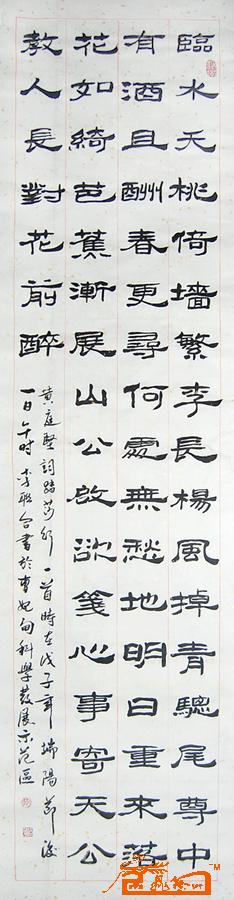 臨水夭桃倚墻繁李長楊風掉青驄尾尊中
有酒且酬春更尋何處無愁地明日重來落
花如綺芭蕉漸展山公啟欲箋心事寄天公
教人長對花前醉
黃庭堅詞踏莎行一首時在戊子年端陽節後
一日午時李聯合書於曹妃甸科學發展示范區